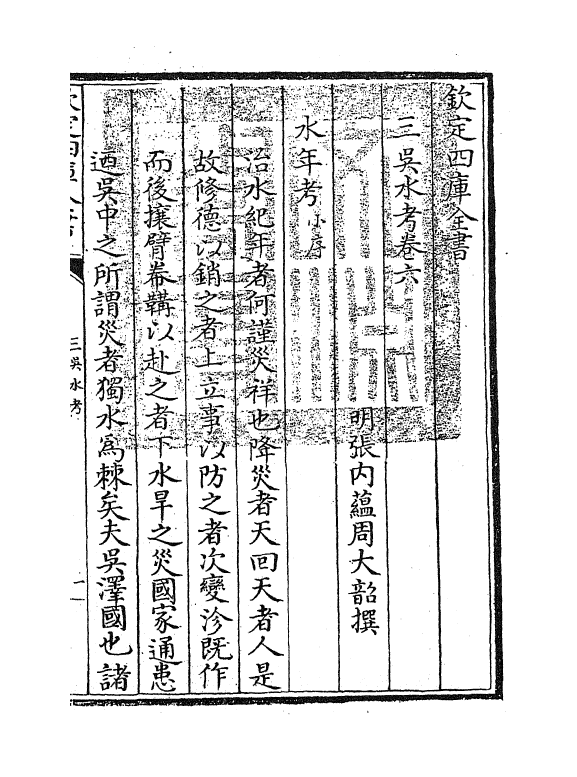 欽定四庫全書
三吳水考卷六
明張內蘊周大韶撰
水年考小序
治水紀年者何謹災祥也降災者天回天者人是
故修德以銷之者上立事以防之者次變沴既作
而後攘臂帣韝以赴之者下水旱之災國家通患
廼吳中之所謂災者獨水為棘矣夫吳澤國也諸
三吳水考
一